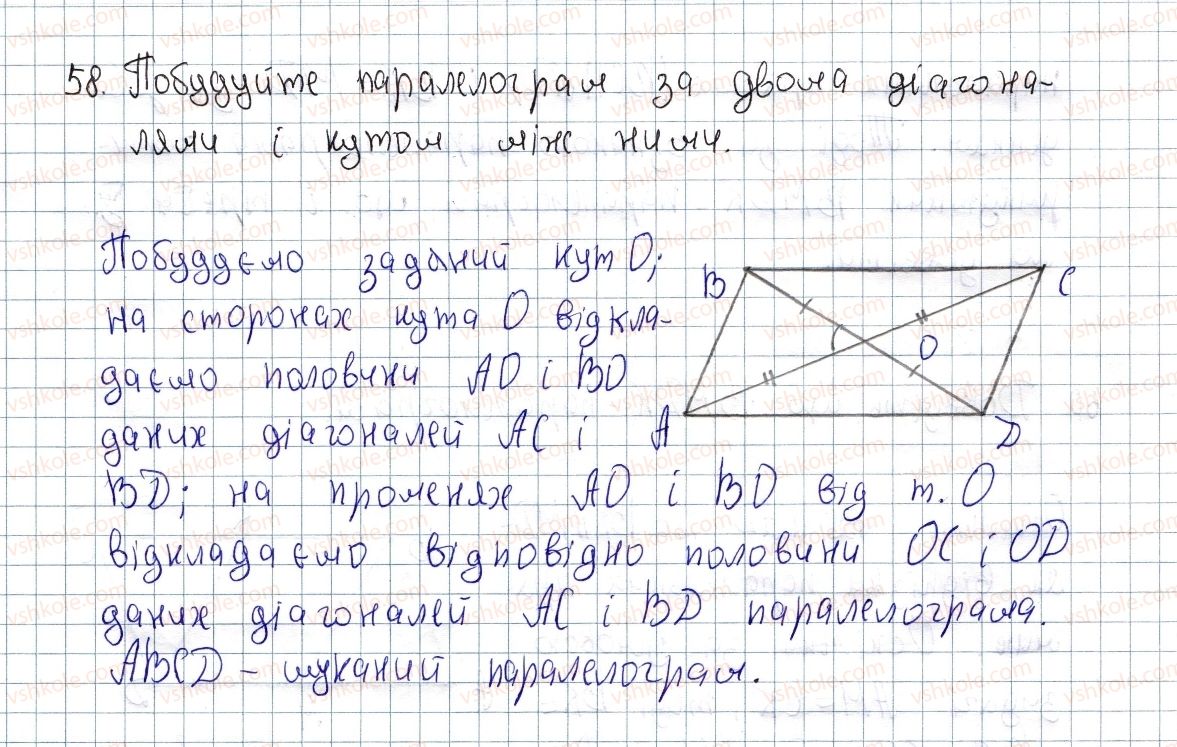 58. Побудуйте паралелограм за двома діагона-
лями і кутом між ними.
Побудуємо заданий кут О;
на сторонах кута О відкла-
даємо половини АО і ВО
даних діагоналей АС і
ВD; на променях АО і ВО від т. О
відкладаємо відповідно половини ОС і ОD
даних діагоналей АС і ВD паралелограма.
АВСD – шуканий паралелограм.
B
C
O
A
D